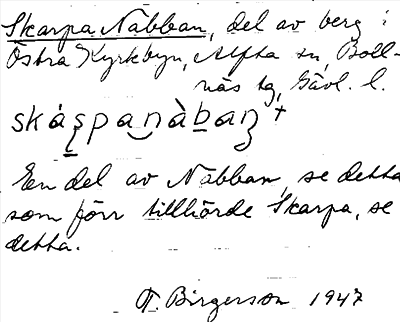 Skarpa Nabban, del av berg i
Östra Kyrkbyn, Alfta sn, Boll-
näs tg, Gävl. l.
skáspanàban +
En del av Nabban, se detta
som förr tillhörde Skarpa, se
detta.
T. Birgerson 1947